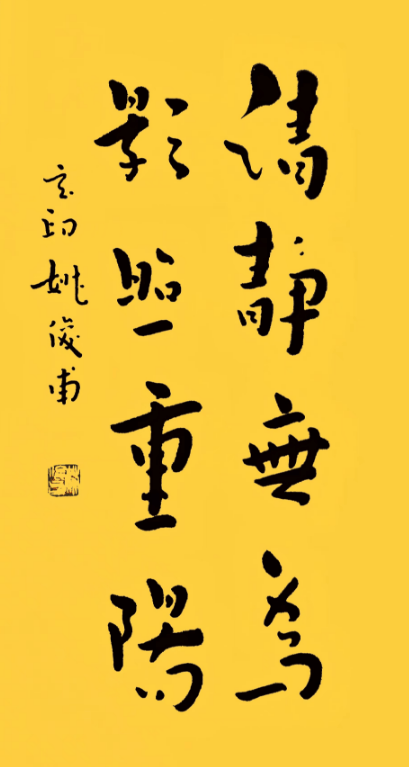 清靜無為
影照重陽
玄印姚俊甫